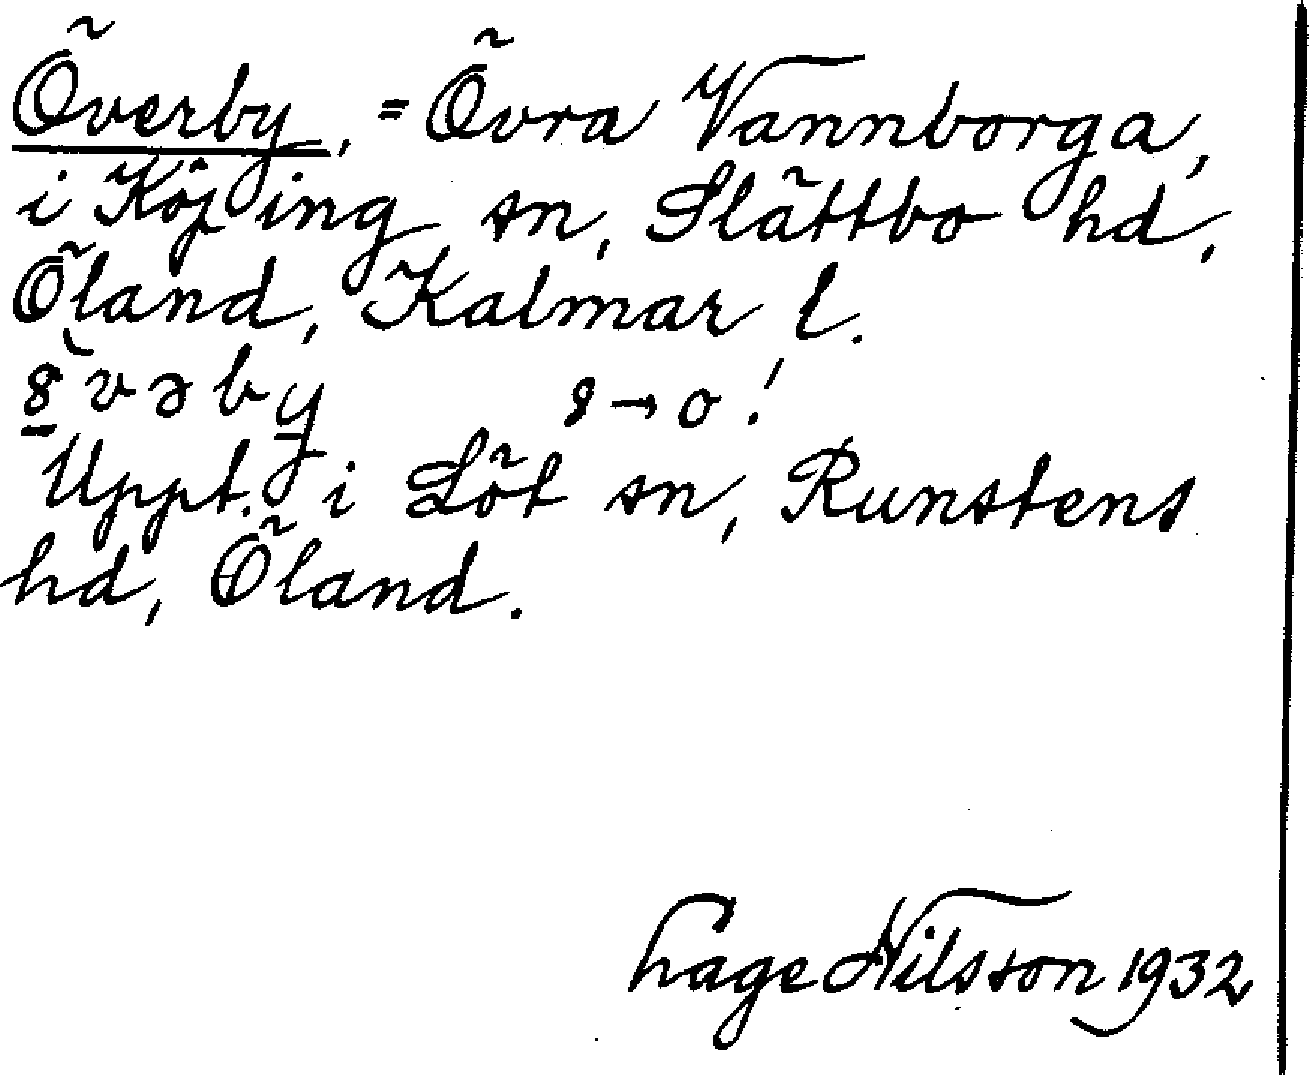 Överby, = Övra Vannborga,
i Köping sn, Slättbo hd,
Öland, Kalmar l.
vəby → o!
Uppt. i Löt sn, Runstens
hd, Öland.
Hage Nilsson 1932